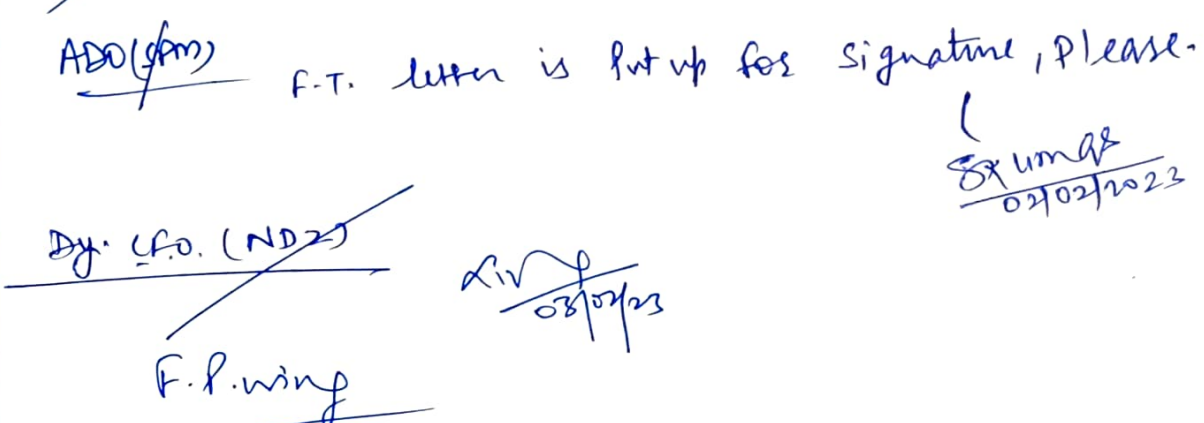 F.T. letter is Put up for signature, Please.
ADO(SPM)
02/02/2023
Dy. CFO. (NDZ)
03/02/23
F.P. wing